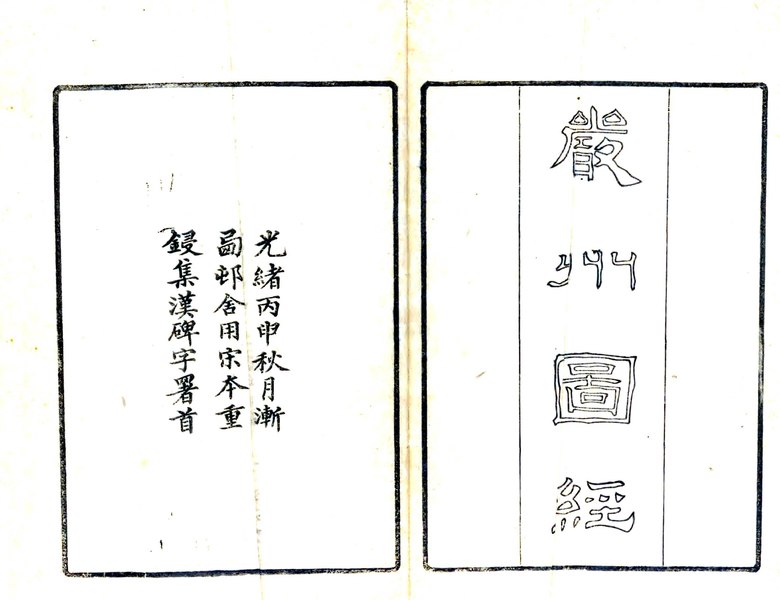 嚴州圖經
光緒丙申秋月漸
㕓邨舍用宋本重
鋟集漢碑字署首